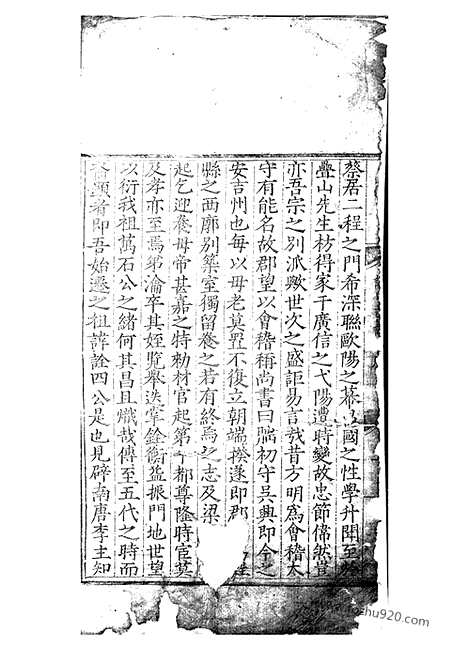 蔡居二程之門希深聯歐陽之幕 國之性學升聞至
疊山先生枋得家于廣信之弋陽遭時變故忠節偉然豈
亦吾宗之別派歟世次之盛詎易言哉昔方明為會稽太
守有能名故郡望以會稽稱尚書曰朏初守吳興即今之
安吉州也每以母老莫置不復立朝端揆遂即郡
縣之西廓別築室獨留養之若有終焉之志及梁
起乞迎養母帝甚嘉之特勑材官起第 都尊隆時官莫
及孝亦至焉弟瀹卒其姪覽舉迭掌銓衡益振門地世望
以衍我祖萬石公之緒何其昌且熾哉傳至五代之時而
顯者即吾始遷之祖諱詮四公是也見辟南唐李主知